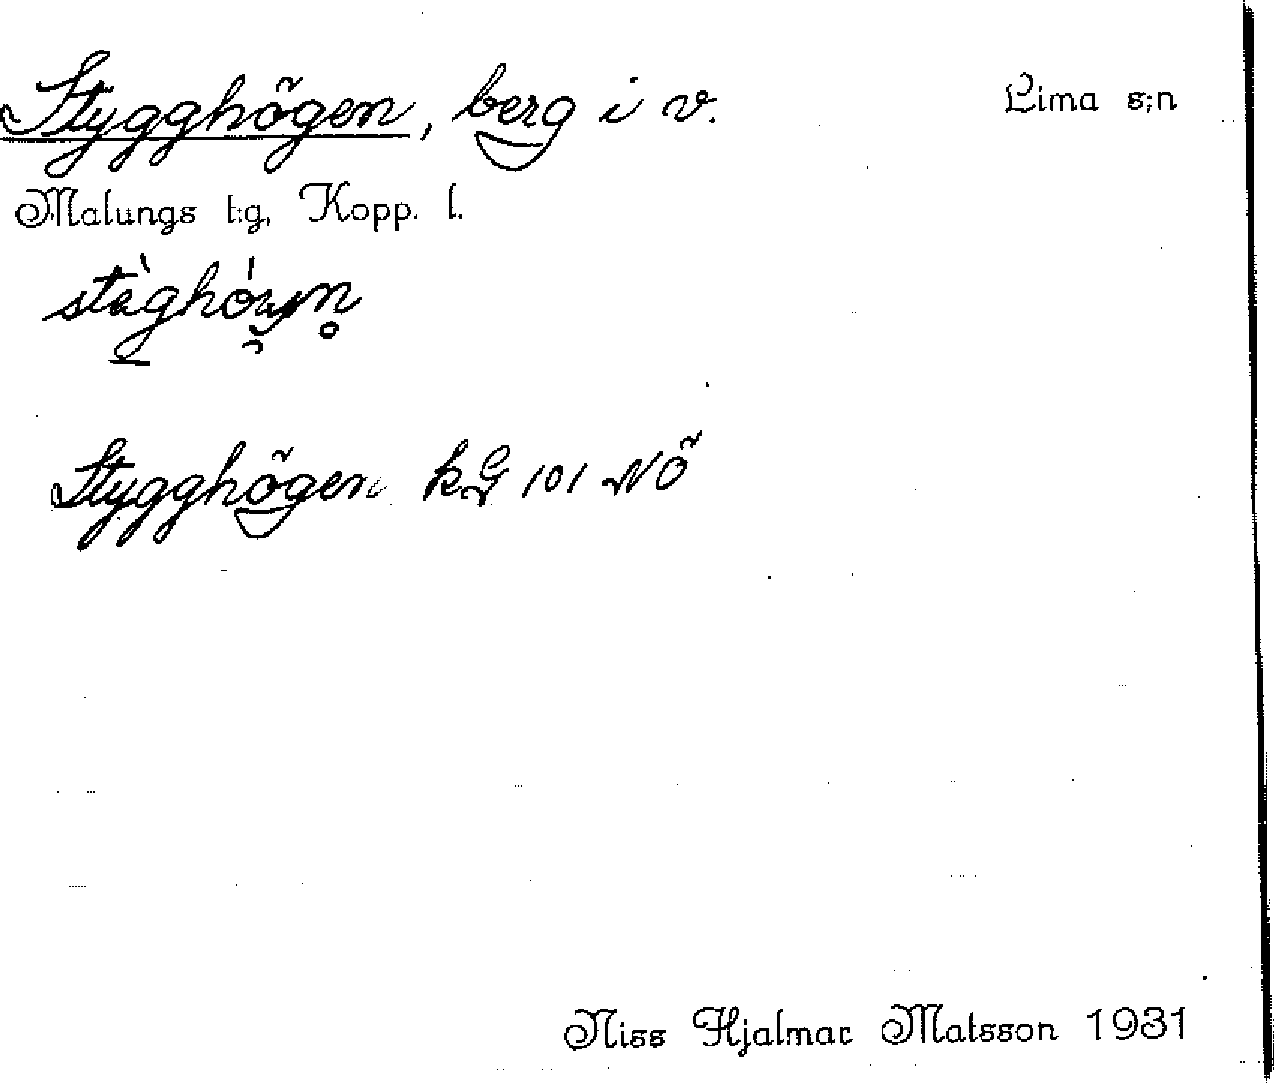 Stygghögen, berg i v. Lima s:n
Malungs t:g, Kopp. l.
Stygghögen kG 101 NÖ
Niss Hjalmar Matsson 1931